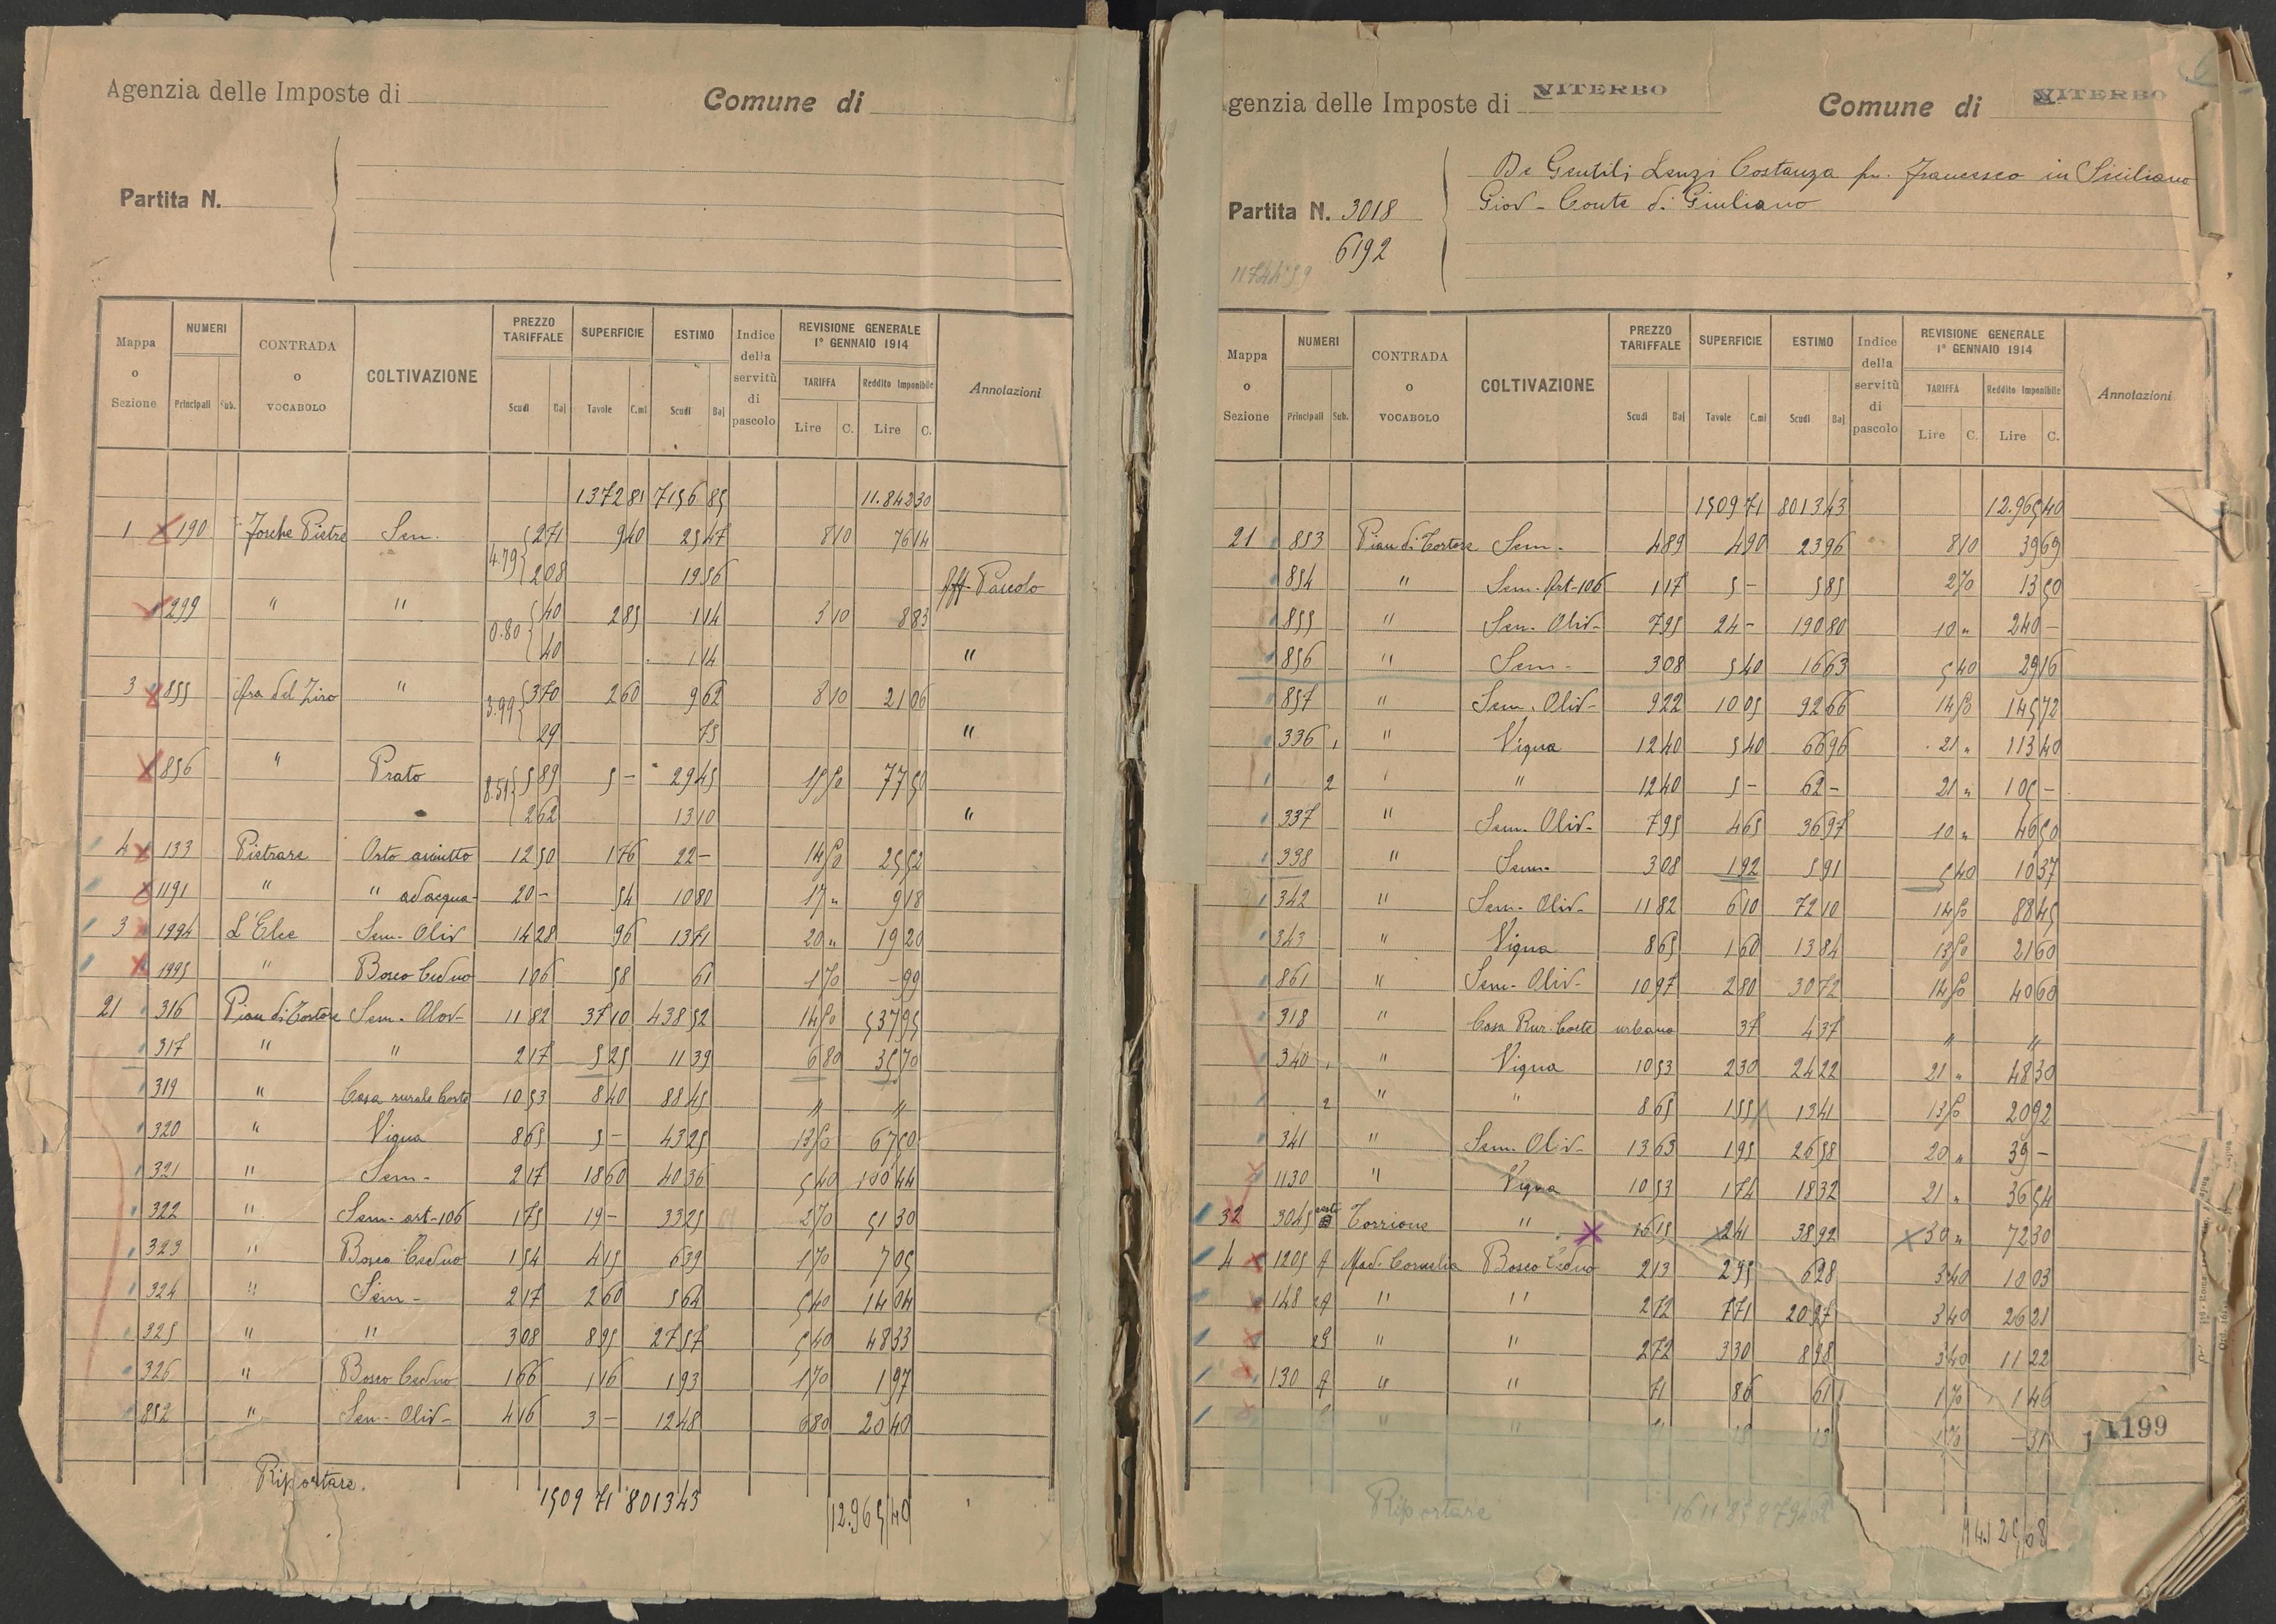 Agenzia delle Imposte di
Comune di
Partita N.
Mappa o Sezione
NUMERI
Principali Sub.
CONTRADA o VOCABOLO
COLTIVAZIONE
PREZZO TARIFFALE
Scudi Baj
SUPERFICIE
Tavole C.mi
ESTIMO
Scudi Baj
Indice della servitù di pascolo
REVISIONE GENERALE
1° GENNAIO 1914
TARIFFA
Lire C.
Reddito Imponibile
Lire C.
Annotazioni
1372 81 7156 85 11.842 30
1 190 Fosche Pietre Sem. 4.79 2 71 9 40 25 47 8 10 76 14
2 08 19 56 Aff. Pascolo
299 " " 0.80 40 2 85 1 14 3 10 8 83
40 1 14 "
3 855 Ara del Ziro " 3.99 3 70 2 60 9 62 8 10 21 06
29 75 "
856 " Prato 8.51 5 89 5 - 29 45 15 50 77 50
2 62 13 10 "
4 133 Pietrare Orto asciutto 12 50 1 76 22 - 14 50 25 52
1191 " " adacqua 20 - 54 10 80 17 " 9 18
3 1994 L'Elce Sem. Oliv 14 28 96 13 71 20 " 19 20
1995 " Bosco Ceduo 1 06 58 61 1 70 - 99
21 316 Pian di Tortore Sem. Olov- 11 82 37 10 438 52 14 50 537 95
317 " " 2 17 5 25 11 39 6 80 35 70
319 " Casa rurale Corte 10 53 8 40 88 45 " "
320 " Vigna 8 65 5 - 43 25 13 50 67 50
321 " Sem- 2 17 18 60 40 36 5 40 100 44
322 " Sem- art-106 1 75 19 - 33 25 2 70 51 30
323 " Bosco Ceduo 1 54 4 15 6 39 1 70 7 05
324 " Sem- 2 17 2 60 5 64 5 40 14 04
325 " " 3 08 8 95 27 57 5 40 48 33
326 " Bosco Ceduo 1 66 1 16 1 93 1 70 1 97
852 " Sem- Oliv- 4 16 3 - 12 48 6 80 20 40
Riportare.
1509 71 8013 43 12.965 40
Agenzia delle Imposte di VITERBO
Comune di VITERBO
Partita N. 3018
6192
De Gentili Lenzi Costanza fu. Francesco in Siciliano
Giov- Conte di Giuliano
Mappa o Sezione
NUMERI
Principali Sub.
CONTRADA o VOCABOLO
COLTIVAZIONE
PREZZO TARIFFALE
Scudi Baj
SUPERFICIE
Tavole C.mi
ESTIMO
Scudi Baj
Indice della servitù di pascolo
REVISIONE GENERALE
1° GENNAIO 1914
TARIFFA
Lire C.
Reddito Imponibile
Lire C.
Annotazioni
1509 71 8013 43 12.965 40
21 853 Pian di Tortore Sem- 4 89 4 90 23 96 8 10 39 69
854 " Sem- Art-106 1 17 5 - 5 85 2 70 13 50
855 " Sem- Oliv- 7 95 24 - 190 80 10 " 240 -
856 " Sem- 3 08 5 40 16 63 5 40 29 16
857 " Sem. Oliv- 9 22 10 05 92 66 14 50 145 72
336 1 " Vigna 12 40 5 40 66 96 21 " 113 40
2 " 12 40 5 - 62 - 21 " 105 -
337 " Sem- Oliv- 7 95 4 65 36 97 10 " 46 50
338 " Sem- 3 08 1 92 5 91 5 40 10 37
342 " Sem- Oliv- 11 82 6 10 72 10 14 50 88 45
343 " Vigna 8 65 1 60 13 84 13 50 21 60
861 " Sem- Oliv- 10 97 2 80 30 72 14 50 40 60
318 " Casa Rur. Corte urbano 37 4 37 " "
340 1 " Vigna 10 53 2 30 24 22 21 " 48 30
2 " " 8 65 1 55 13 41 13 50 20 92
341 " Sem- Oliv- 13 63 1 95 26 58 20 " 39 -
1130 " Vigna 10 53 1 74 18 32 21 " 36 54
32 3045 Torrione " 16 15 2 41 38 92 30 " 72 30
4 1205 Mad. Cornelia Bosco Ceduo 2 13 2 95 6 28 3 40 10 03
148 " " 2 72 7 71 20 97 3 40 26 21
" " 2 72 3 30 8 98 3 40 11 22
130 " " 71 86 61 1 70 1 46
" " 1 70 - 31
1199
Riportare
14.125 68